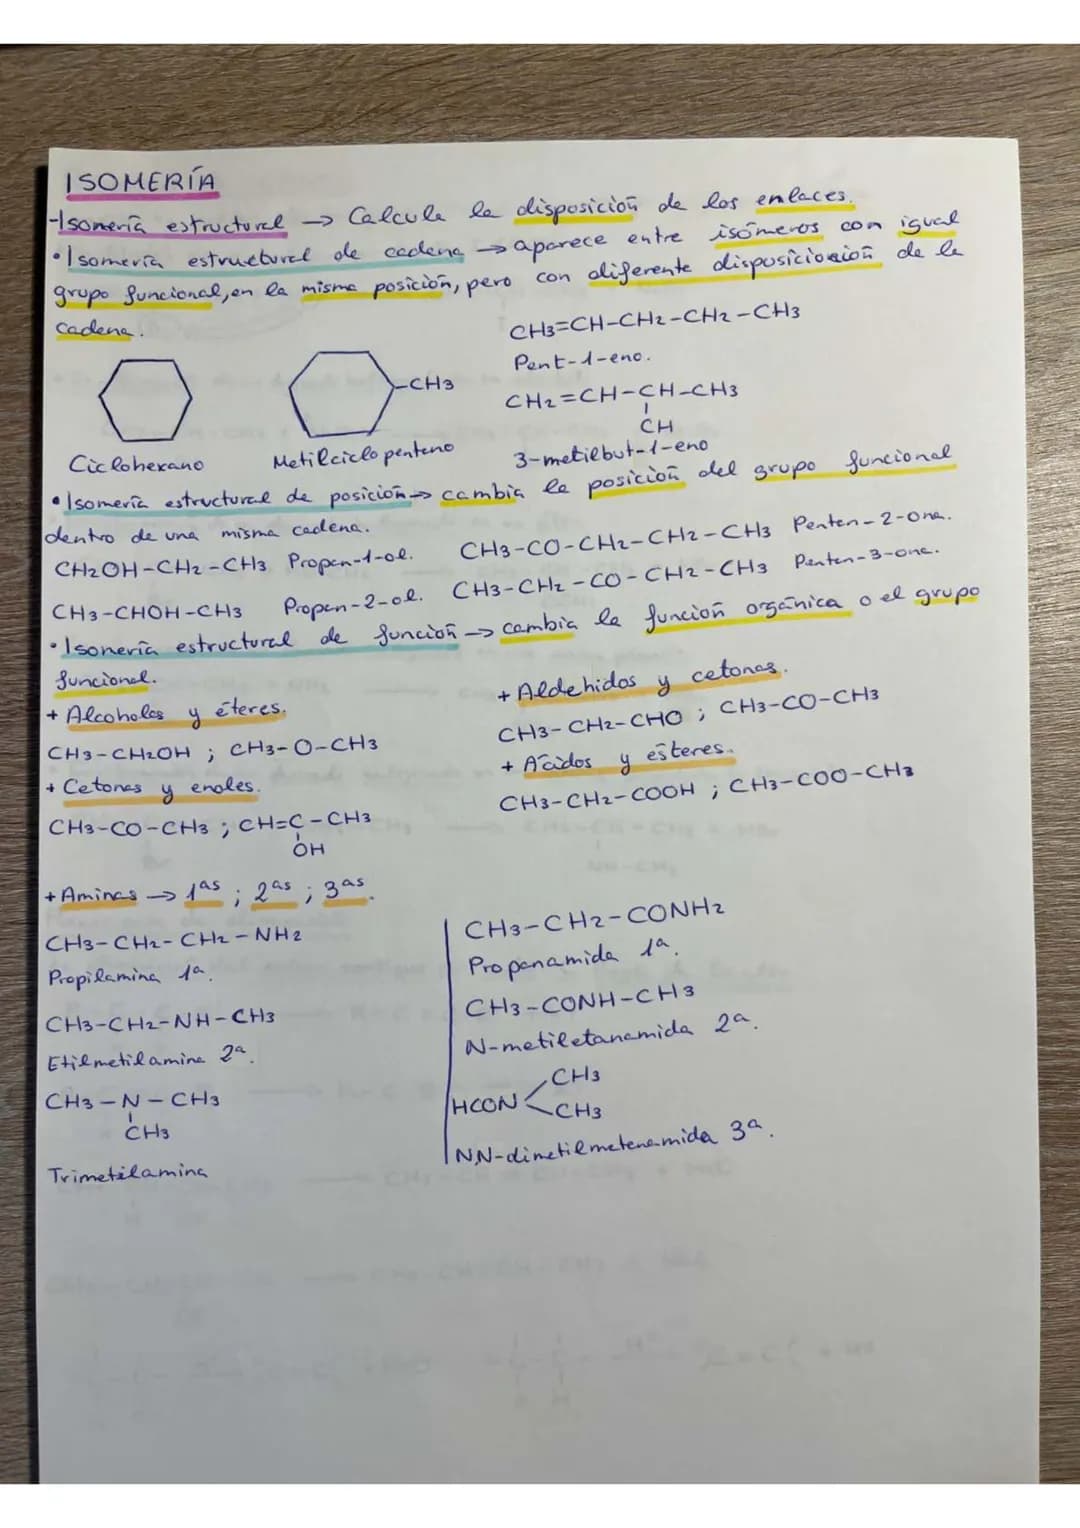 ISOMERÍA
-Isomería estructural → Calcula la disposición de los enlaces.
• Isomería estructural de cadena → aparece entre isómeros con igual
grupo funcional, en la misma posición, pero con diferente disposicioición de la
cadena.
CH3=CH-CH2-CH2-CH3
Pent-1-eno.
-CH3
CH2=CH-CH-CH3
CH
Ciclohexano
Metilciclopentano
3-metilbut-1-eno
• Isomería estructural de posición → cambia la posición del grupo funcional
dentro de una misma cadena.
CH2OH-CH2-CH3 Propan-1-ol.
CH3-CO-CH2-CH2-CH3 Pentan-2-ona.
CH3-CHOH-CH3 Propan-2-ol.
CH3-CH2-CO-CH2-CH3 Pentan-3-ona.
• Isomería estructural de función → cambia la función orgánica o el grupo
funcional.
+ Alcoholes y éteres.
CH3-CH2OH ; CH3-O-CH3
+ Cetonas y enoles.
CH3-CO-CH3 ; CH=C-CH3
OH
+ Aldehidos y cetonas.
CH3-CH2-CHO ; CH3-CO-CH3
+ Ácidos y ésteres.
CH3-CH2-COOH ; CH3-COO-CH3
+ Aminas → 1as ; 2as ; 3as.
CH3-CH2-CH2-NH2
Propilamina 1a.
CH3-CH2-NH-CH3
Etilmetilamina 2a.
CH3-N-CH3
CH3
Trimetilamina
CH3-CH2-CONH2
Propanamida 1a.
CH3-CONH-CH3
N-metiletanamida 2a.
CH3
HCON
CH3
NN-dimetilmetanamida 3a.